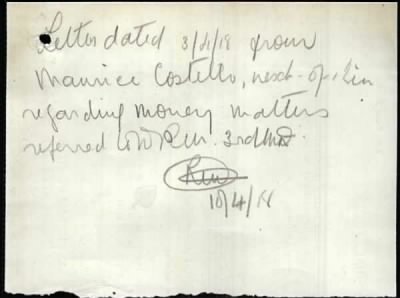 Letter dated 3/4/18 from
Maurice Costello, next-of-kin
regarding money matters
referred to 3rd M.D.
10/4/18